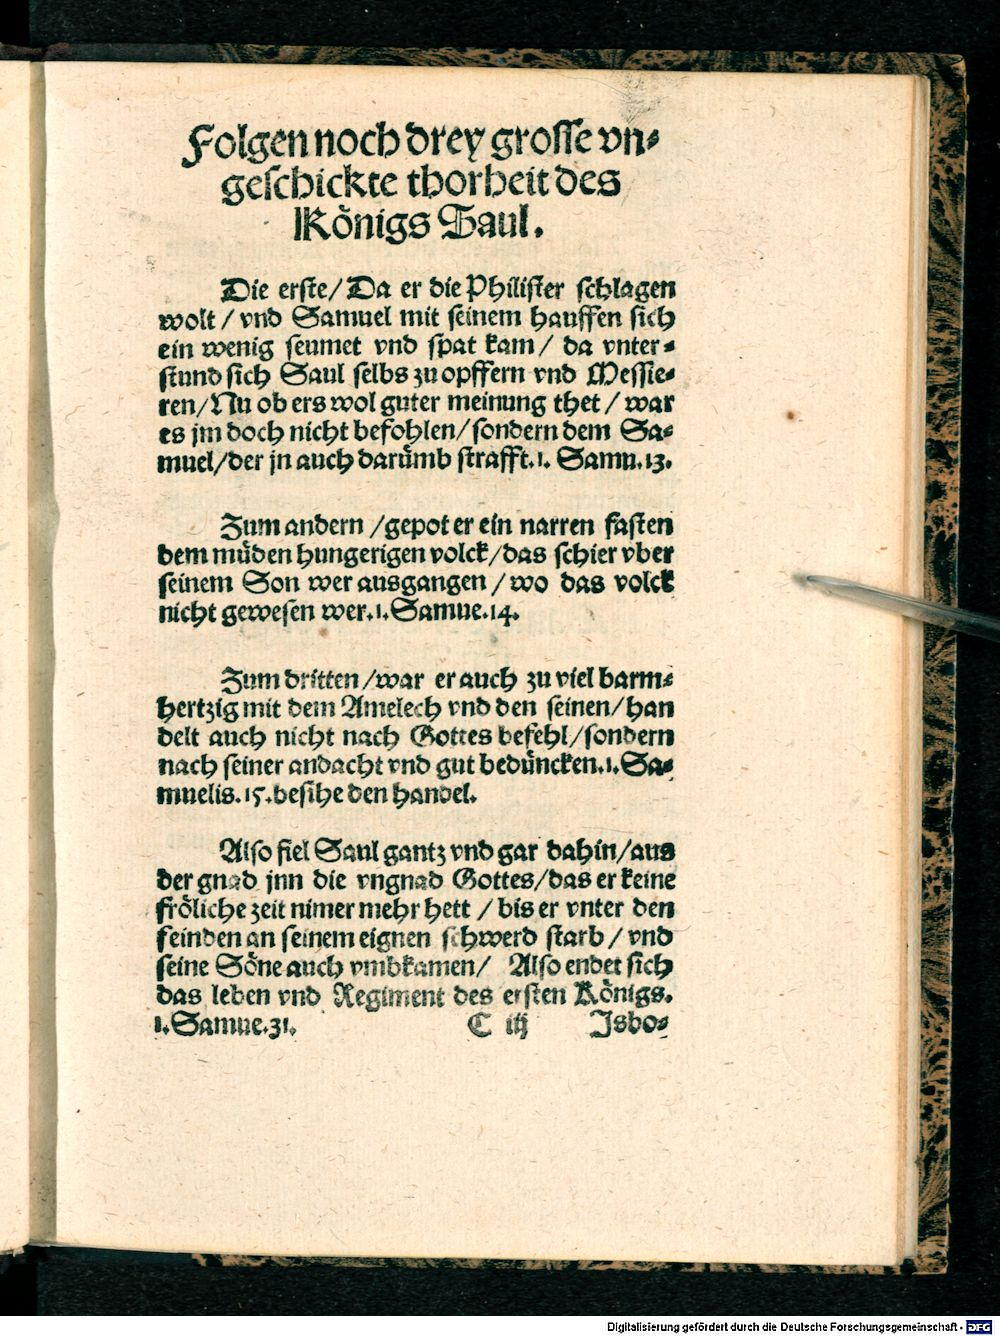 Folgen noch drey grosse vn-
geschickte thorheit des
Königs Saul.
Die erste/ Da er die Philister schlagen
wolt / vnd Samuel mit seinem hauffen sich
ein wenig seumet vnd spat kam/ da vnter-
stund sich Saul selbs zu opffern vnd Messie-
ren/ Nu ob ers wol guter meinung thet / war
es jm doch nicht befohlen/ sondern dem Sa-
muel/ der jn auch darümb strafft. 1. Samu. 13.
Zum andern / gepot er ein narren fasten
dem müden hungerigen volck/ das schier vber
seinem Son wer ausgangen / wo das volck
nicht gewesen wer. 1. Samue. 14.
Zum dritten / war er auch zu viel barm-
hertzig mit dem Amelech vnd den seinen/ han
delt auch nicht nach Gottes befehl/ sondern
nach seiner andacht vnd gut bedüncken. 1. Sa-
muelis. 15. besihe den handel.
Also fiel Saul gantz vnd gar dahin/ aus
der gnad jnn die vngnad Gottes/ das er keine
fröliche zeit nimer mehr hett / bis er vnter den
feinden an seinem eignen schwerd starb / vnd
seine Söne auch vmbkamen/ Also endet sich
das leben vnd Regiment des ersten Königs.
1. Samue. 31. C iij Jsbo-
Digitalisierung gefördert durch die Deutsche Forschungsgemeinschaft - DFG